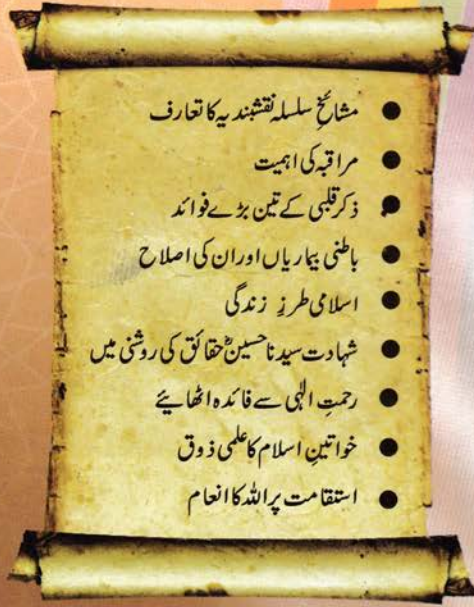 ● مشائخِ سلسلہ نقشبندیہ کا تعارف
● مراقبہ کی اہمیت
● ذکر قلبی کے تین بڑے فوائد
● باطنی بیماریاں اور ان کی اصلاح
● اسلامی طرزِ زندگی
● شہادت سیدنا حسینؓ حقائق کی روشنی میں
● رحمتِ الٰہی سے فائدہ اٹھایئے
● خواتینِ اسلام کا علمی ذوق
● استقامت پر اللہ کا انعام